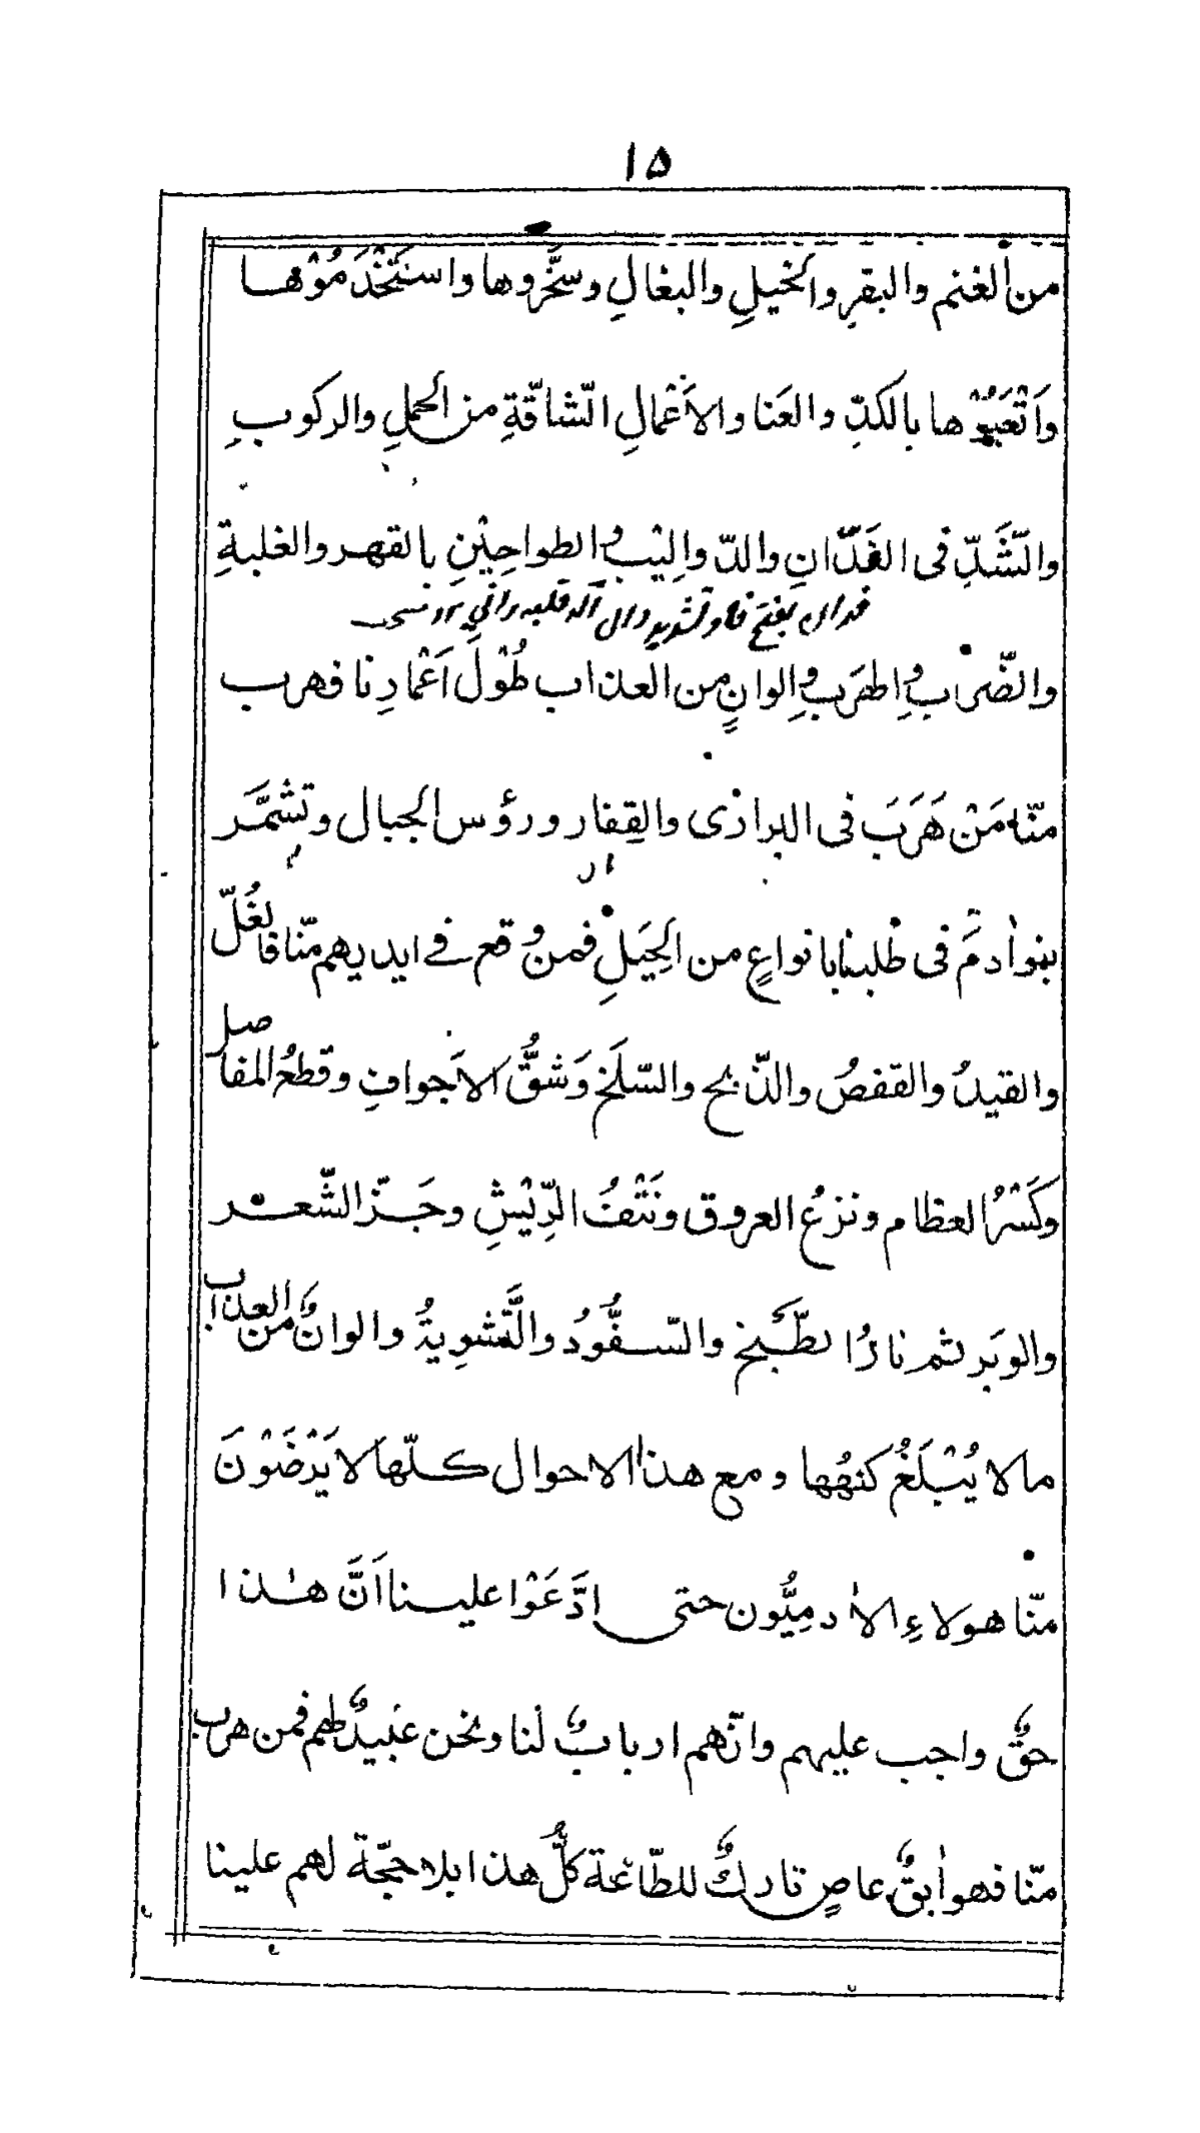 ۱۵
من الغنم والبقرِ والخيلِ والبغالِ وسخَّروها واستَخْدَمُوْها
وَاَتْعَبُوْها بالكدِّ والعَنا والاَعْمالِ الشّاقّةِ من الحملِ والركوبِ
والشَّدِّ فى الفَدّانِ والدّوالِيْبِ والطواحِيْنِ بالقهر والغلبةِ
فدان بفتح فا و تشديد دال آلہ قلبہ رانی
والضّرابِ و
من العذاب طُوْلَ اَعْمارِنا فهرب
منّا مَنْ هَرَبَ فى البرارى والقِفار ورؤس الجبال وتشَمَّر
بنواٰدمَ فى طلبنا بانواعٍ من الحِيَلِ فمن وُقع فے ايديهم منّا فالغُلّ
والقيدُ والقفصُ والذّبح والسّلَخ وَشقُّ الاَجوافِ وقطعُ المفاصل
وكَسْرُ العظام ونزعُ العروق ونَتْفُ الرِّيْشِ وجَزّ الشّعر
والوبَر ثم نارُ الطّبْخ والسّفُّوْدُ والتَّشوِيةُ والوانٌ من العذاب
ما لا يُبْلَغُ كنهُها ومع هذا الاحوال كلّها لا يَرْضَوْنَ
منّا هولاءِ الاٰدمِيُّون حتى اِدَّعَوْا علينا اَنَّ هٰذا
حقٌّ واجب عليهم وانّهم اربابٌ لنا ونحن عَبيدٌ لهم فمن هرب
منّا فهو اٰبقٌ عاصٍ تاركٌ للطّاعة كلُّ هذا بلا حجّة لهم علينا